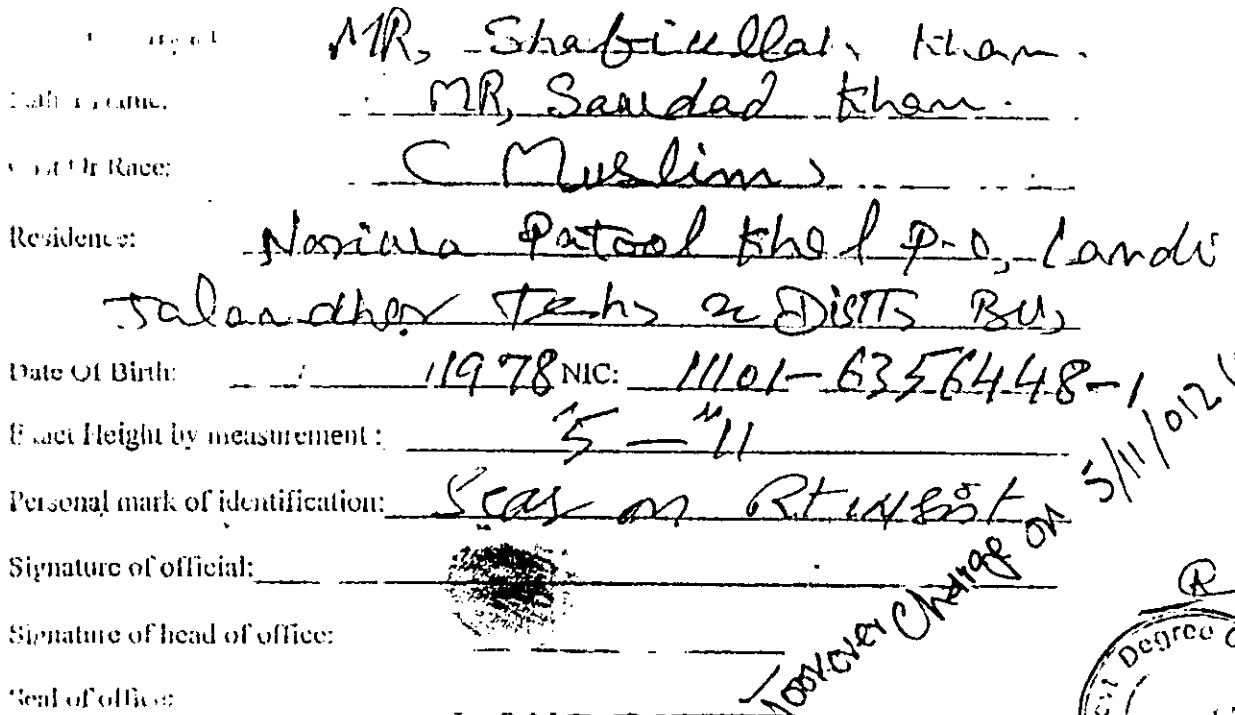 MR, Shafiullah Khan.
MR, Saudad Khan.
Or Race: (Muslim)
Residence: Patool Khel P-O, Landi
Jalaandher Tehs & Distts BU,
Date Of Birth: / /1978 NIC: 11101-6356448-1
Exact Height by measurement : 5 — 11
Personal mark of identification: Scar on Rt wrist
Signature of official:
Signature of head of office:
Seal of office:
Took over Charge on 5/11/012
Degree